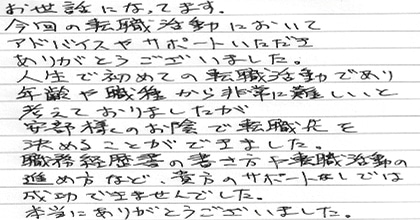 お世話になってます。
今回の転職活動において
アドバイスやサポートいただき
ありがとうございました。
人生で初めての転職活動であり
年齢や職種から非常に難しいと
考えておりましたが
安部様のお陰で転職先を
決めることができました。
職務経歴書の書き方や転職活動の
進め方など、貴方のサポートなしでは
成功できませんでした。
本当にありがとうございました。